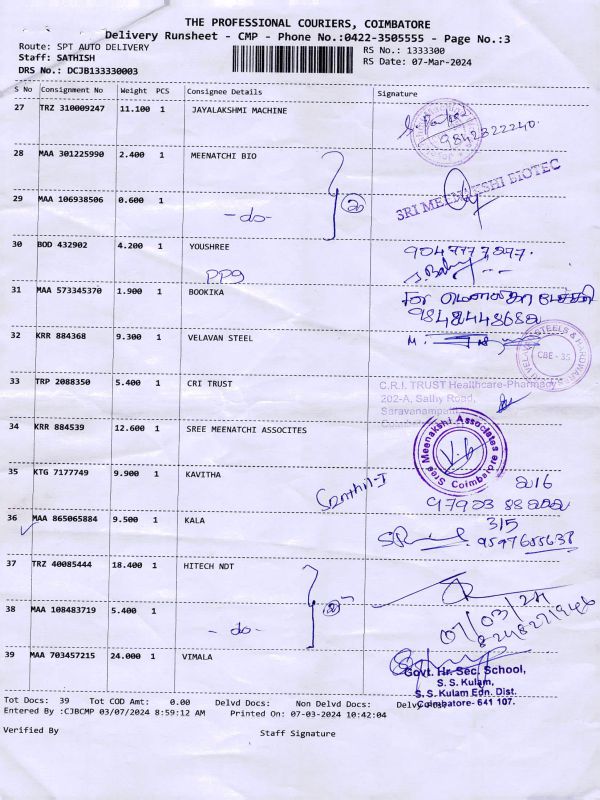 THE PROFESSIONAL COURIERS, COIMBATORE
Delivery Runsheet - CMP - Phone No.:0422-3505555 - Page No.:3
Route: SPT AUTO DELIVERY RS No.: 1333300
Staff: SATHISH RS Date: 07-Mar-2024
DRS No.: DCJB133330003
S No Consignment No Weight PCS Consignee Details Signature
27 TRZ 310009247 11.100 1 JAYALAKSHMI MACHINE
9842322240.
28 MAA 301225990 2.400 1 MEENATCHI BIO
SRI MEENAKSHI BIOTEC
29 MAA 106938506 0.600 1
-do- 2
30 BOD 432902 4.200 1 YOUSHREE
PPG
31 MAA 573345370 1.900 1 BOOKIKA
For
32 KRR 884368 9.300 1 VELAVAN STEEL
VELAVAN STEELS & HARDWARES CBE - 35
33 TRP 2088350 5.400 1 CRI TRUST
C.R.I. TRUST Healthcare-Pharmacy
202-A, Sathy Road,
Saravanampatti
34 KRR 884539 12.600 1 SREE MEENATCHI ASSOCITES
Sree Meenakshi Associates Coimbatore
35 KTG 7177749 9.900 1 KAVITHA
Senthil-J
36 MAA 865065884 9.500 1 KALA
315
9597655637
37 TRZ 40085444 18.400 1 HITECH NDT
07/03/24
38 MAA 108483719 5.400 1
-do- 2
39 MAA 703457215 24.000 1 VIMALA
Govt. Hr. Sec. School,
S. S. Kulam,
S. S. Kulam Edn. Dist.
Coimbatore- 641 107.
Tot Docs: 39 Tot COD Amt: 0.00 Delvd Docs: Non Delvd Docs: Delvy Post
Entered By :CJBCMP 03/07/2024 8:59:12 AM Printed On: 07-03-2024 10:42:04
Verified By Staff Signature